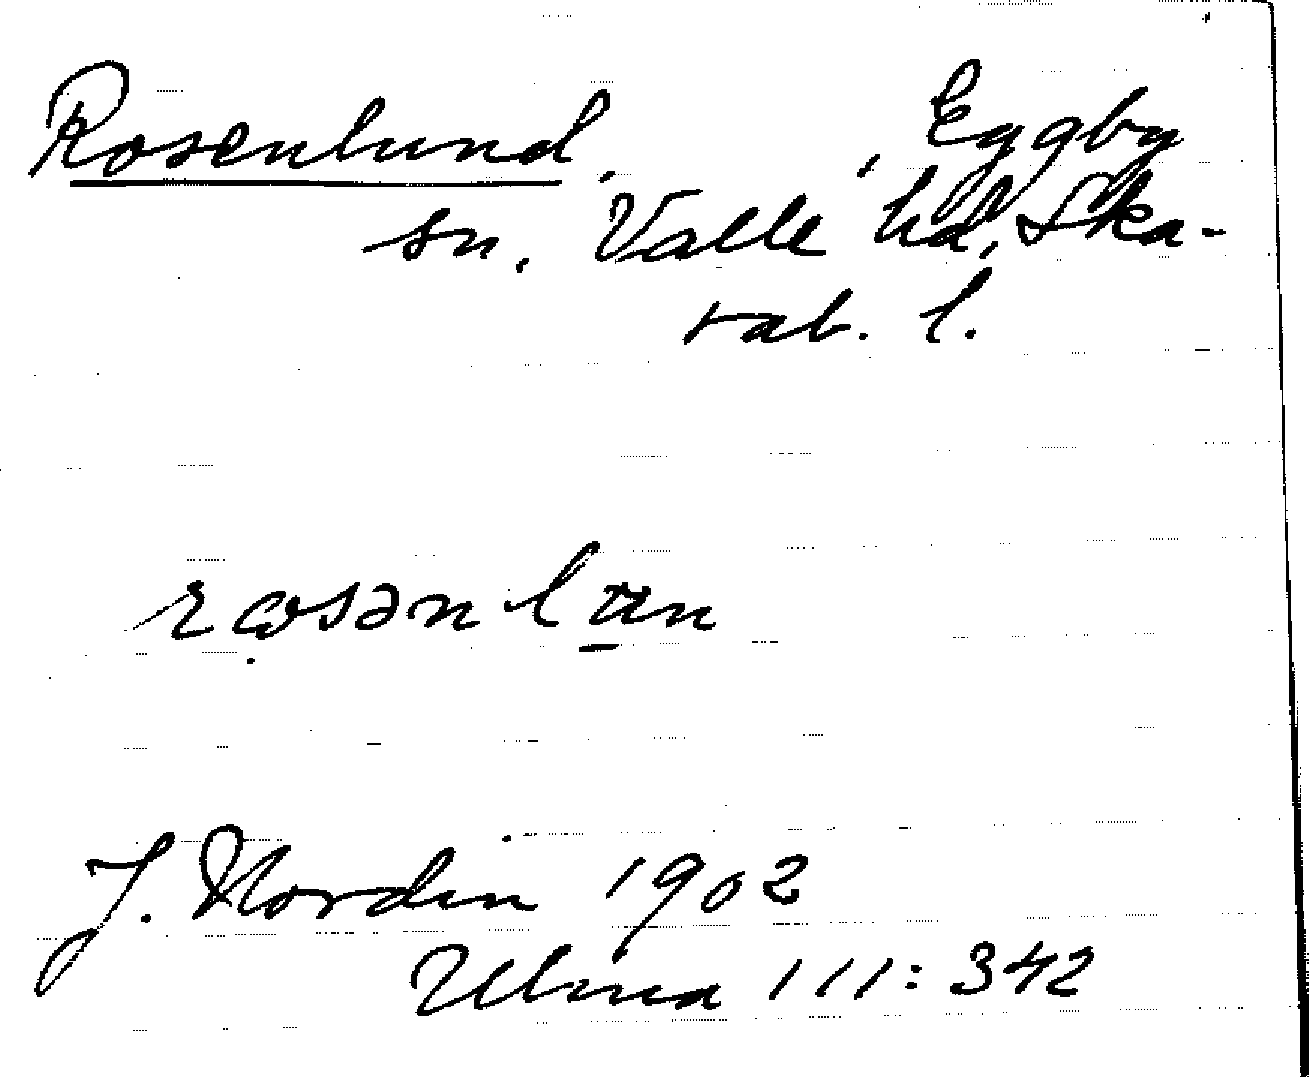 Rosenlund, , Eggby
sn. Valle hd, Ska-
rab. l.
J. Nordin 1902
Ulma 111:342